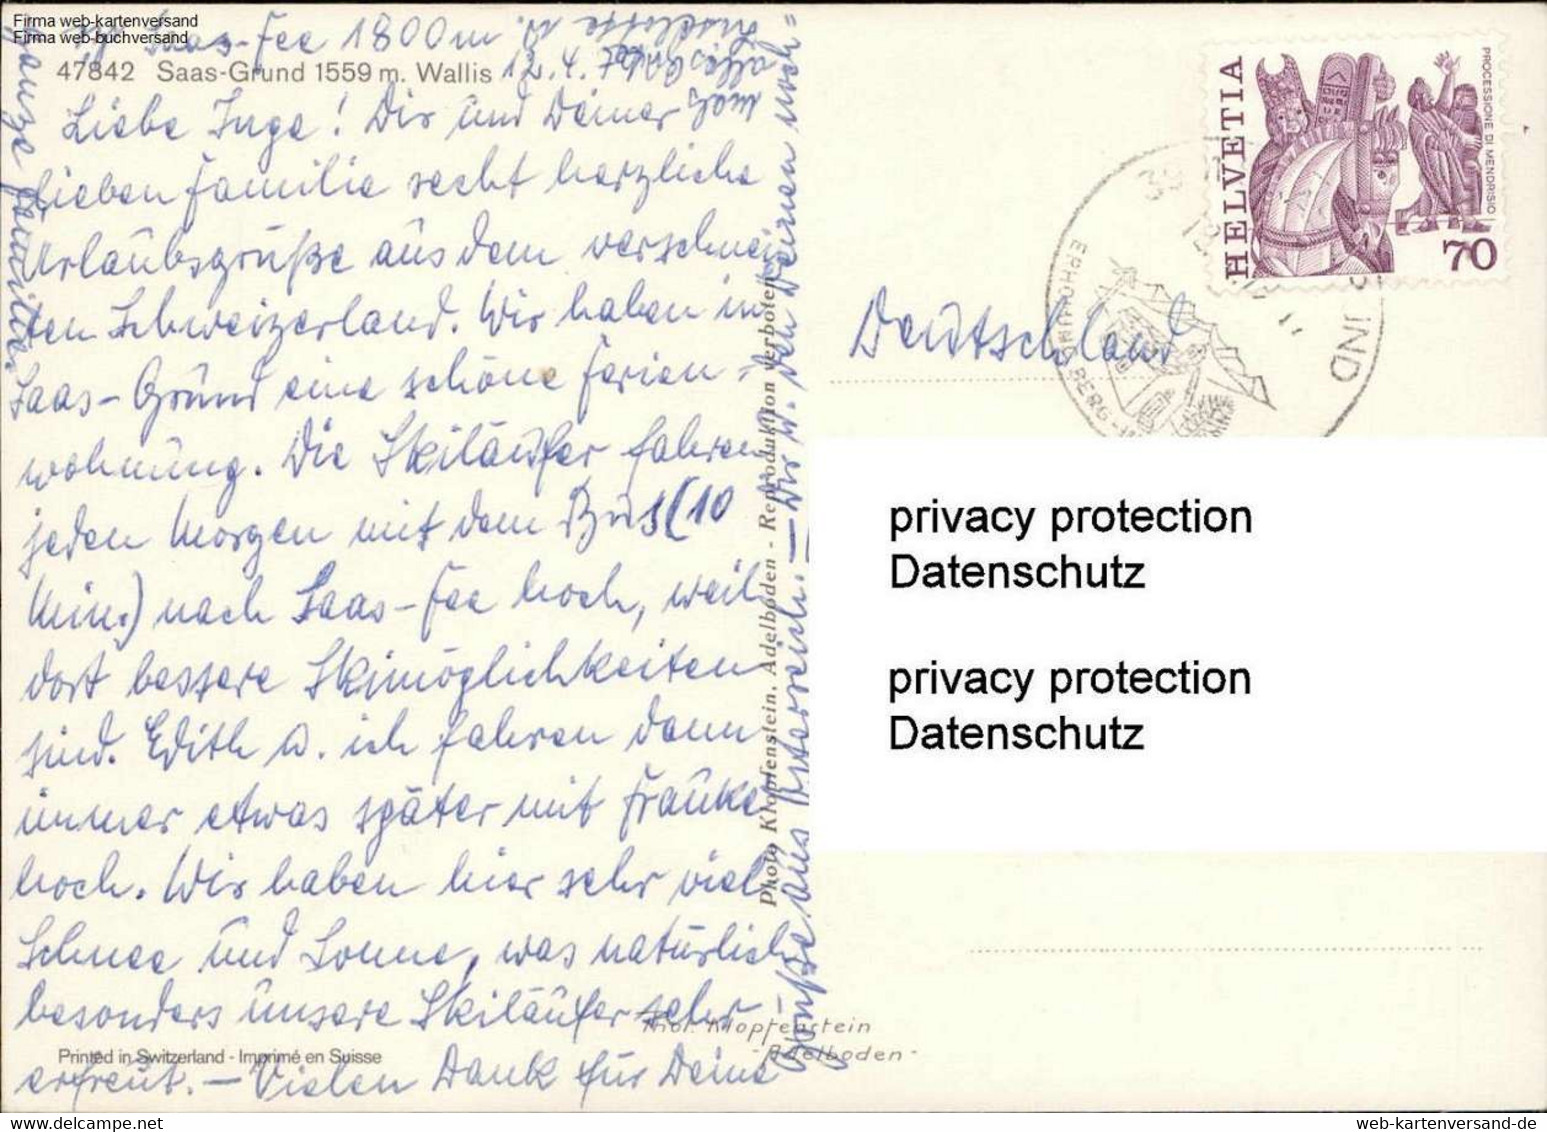 Firma web-kartenversand
Firma web-buchversand
Saas-Fee 1800 m
47842 Saas-Grund 1559 m. Wallis
12.4.7
Liebe Inge! Dir und Deiner
lieben Familie recht herzliche
Urlaubsgrüße aus dem verschnei-
ten Schweizerland. Wir haben in
Saas-Grund eine schöne Ferien=
wohnung. Die Skiläufer fahren
jeden Morgen mit dem Bus (10
Min.) nach Saas-Fee hoch, weil
dort bessere Skimöglichkeiten
sind. Edith u. ich fahren dann
immer etwas später mit Frauke
hoch. Wir haben hier sehr viel
Schnee und Sonne, was natürlich
besonders unsere Skiläufer sehr
erfreut. – Vielen Dank für Deine
Grüße aus Österreich. – Dir u. den Deinen noch
alles Gute
Liselotte u.
ganze Familie
Printed in Switzerland - Imprimé en Suisse
Photo Klopfenstein, Adelboden - Reproduktion verboten
Phot. Klopfenstein
- Adelboden -
HELVETIA
PROCESSIONE DI MENDRISIO
70
Deutschland
privacy protection
Datenschutz
privacy protection
Datenschutz
web-kartenversand@t-online.de